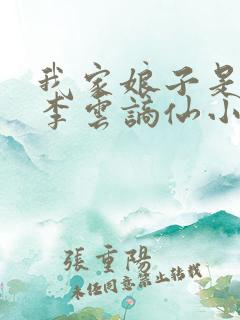 我家娘子是
李雲謫仙小
張重陽
未經同意禁止轉載